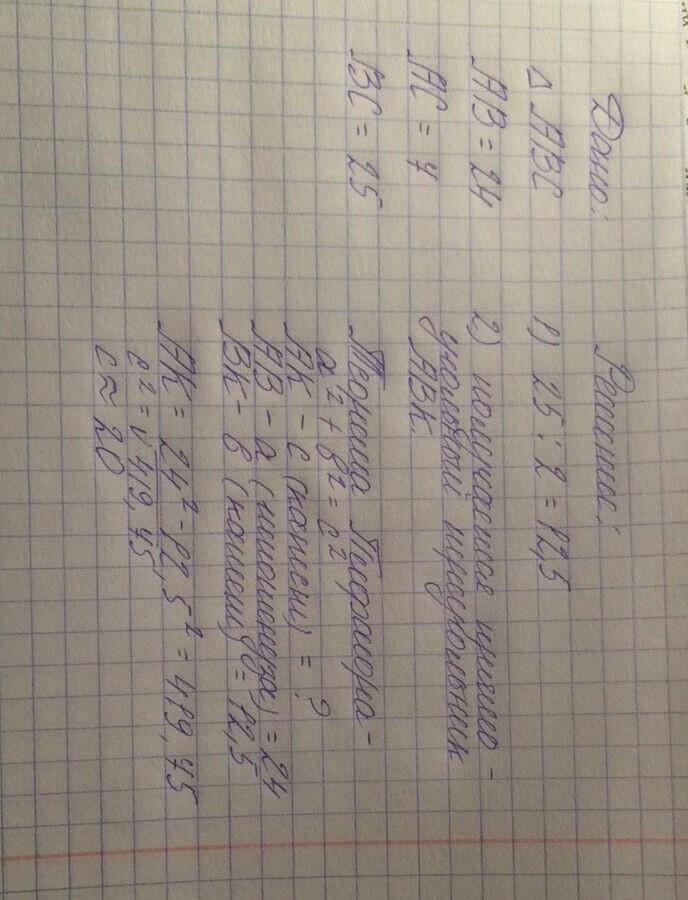 Дано:
△ ABC
AB = 24
AC = 7
BC = 25
Решение:
1) 25 : 2 = 12,5
2) получается прямо-
угольный треугольник
ABK.
Теорема Пифагора -
a² + b² = c²
AK - c (катет) = ?
AB - a (гипотенуза) = 24
BK - b (катет) = 12,5
AK = 24² - 12,5² = 419,75
c² = √419,75
c ≈ 20